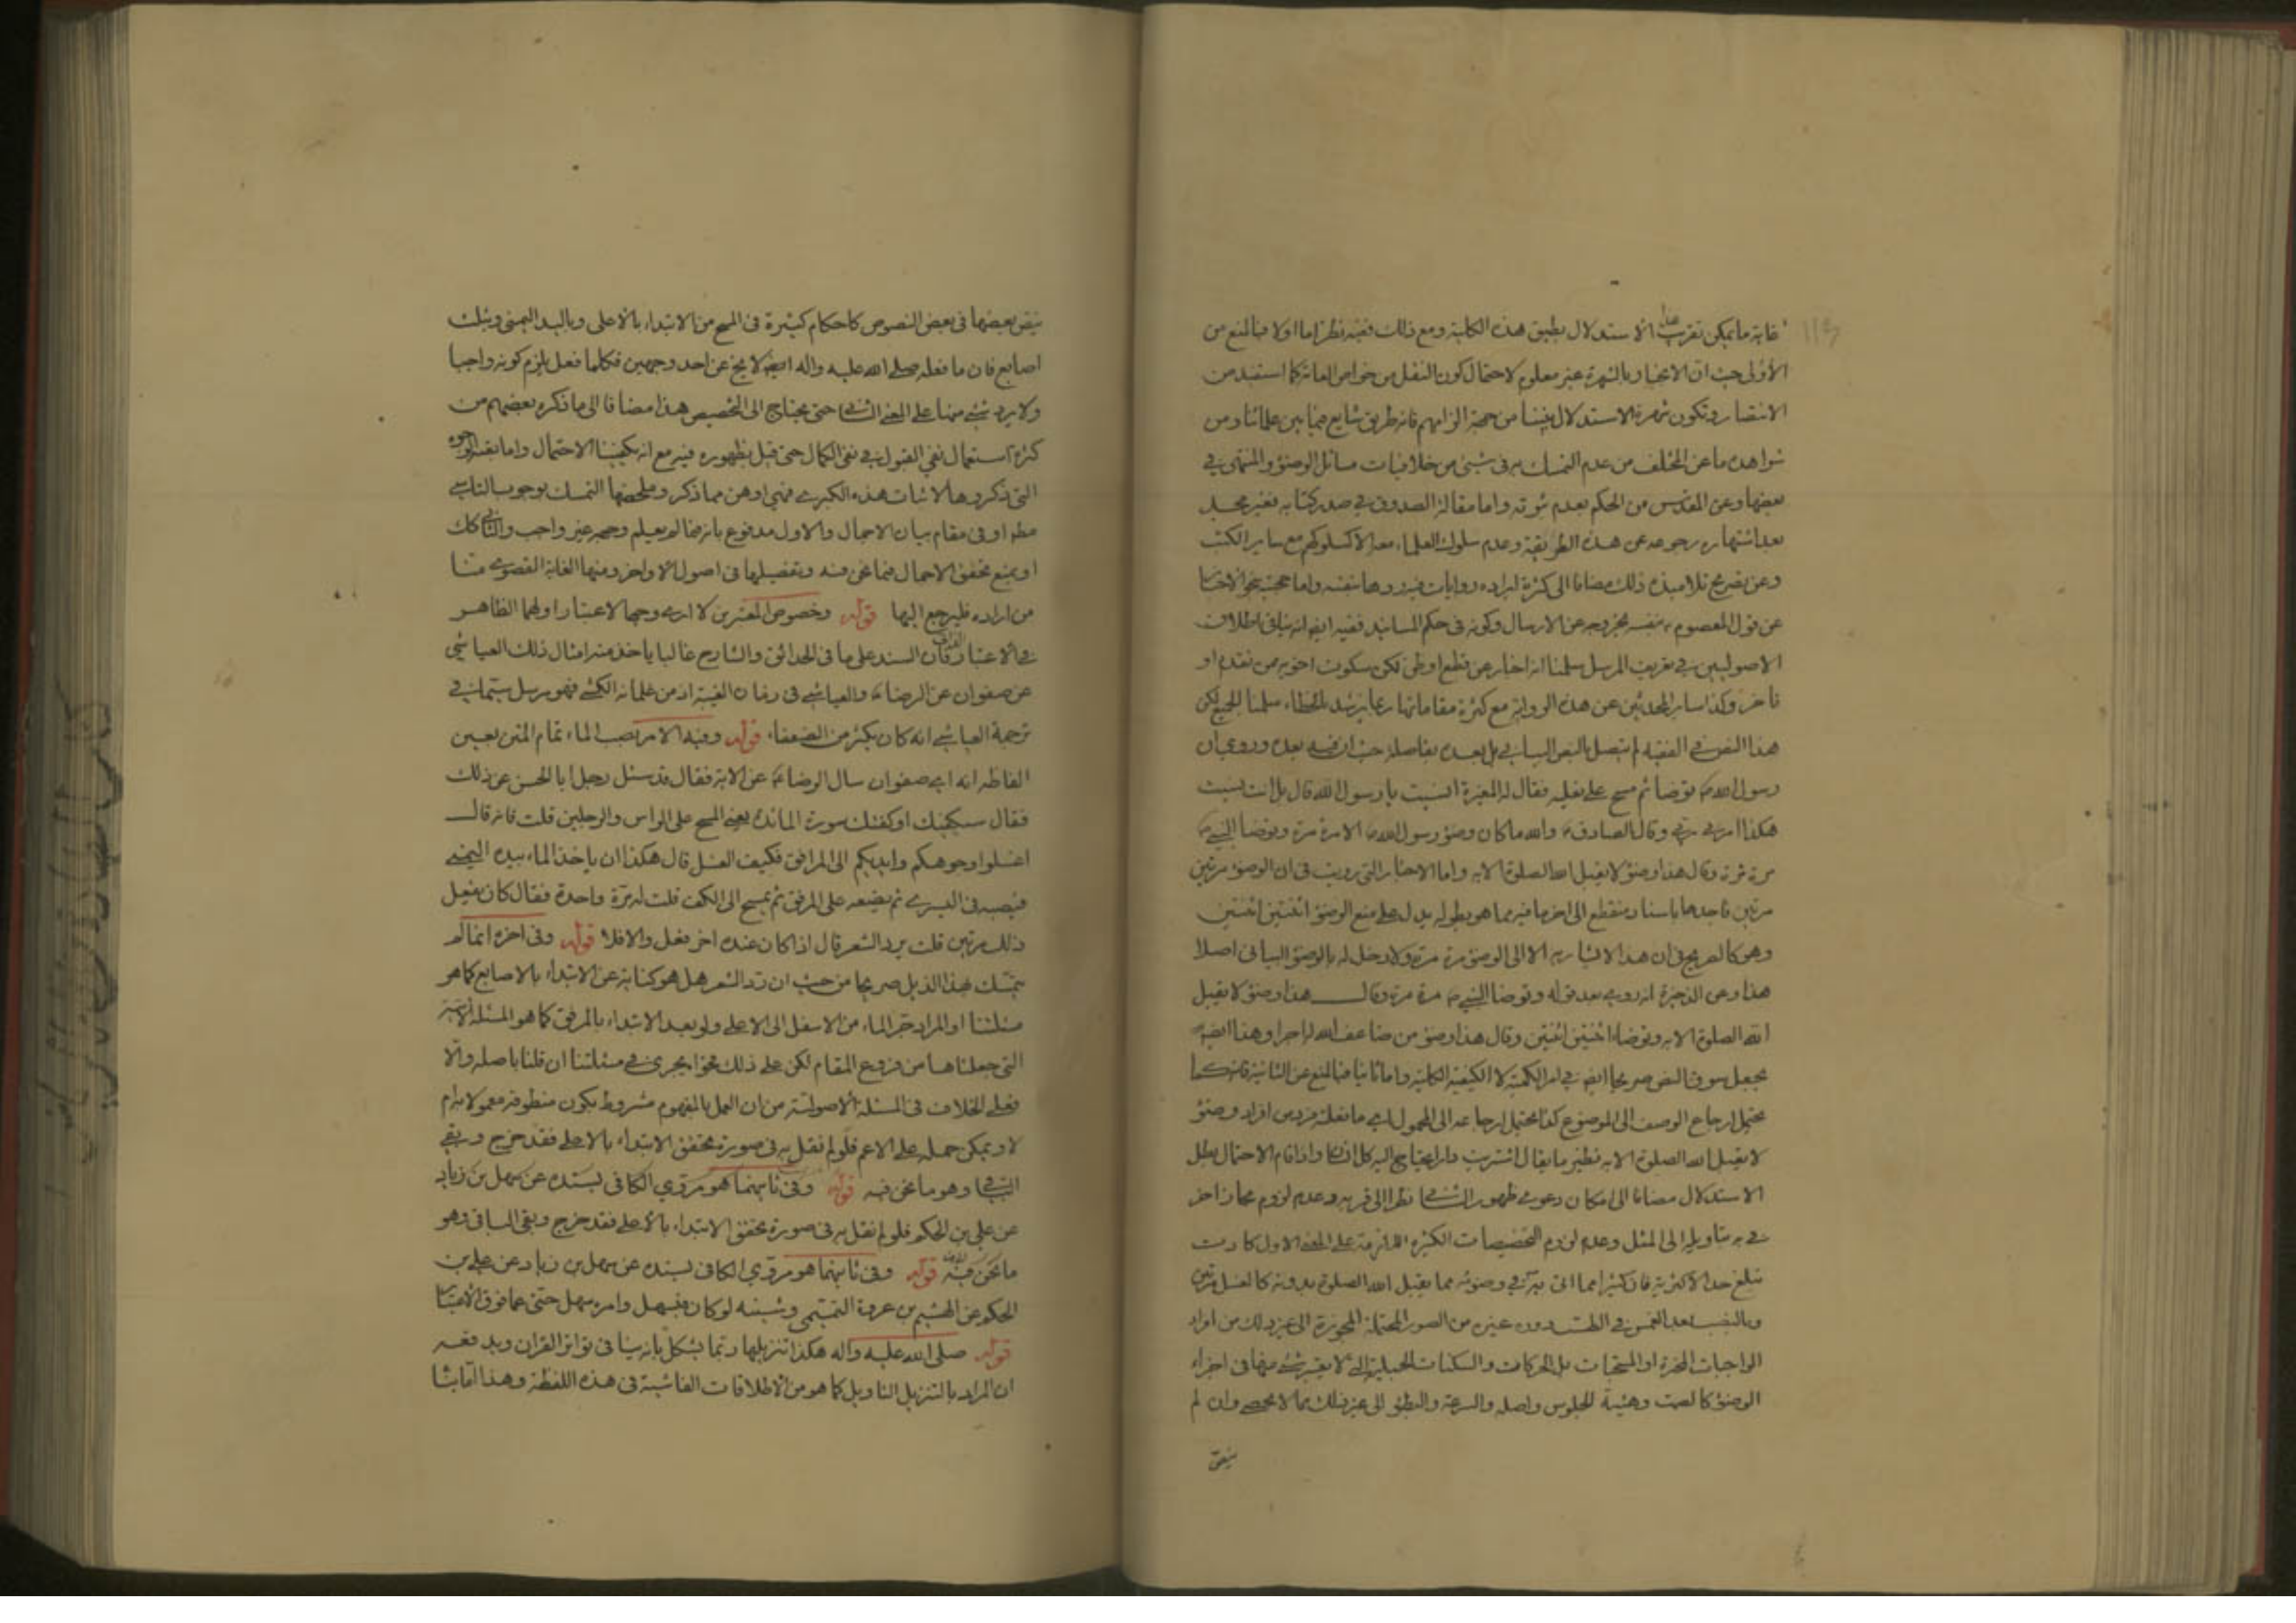 غاية ما يمكن تقريب الاستدلال بطبق هذه الكلية ومع ذلك ففيه نظر اما اولا فبالمنع من
الأولى حيث ان الانجبار بالشهرة غير معلوم لاحتمال كون النقل من خواص العامة كما استفيد من
الانتصار وتكون ثمرة الاستدلال بيننا من جهة الزامهم فانه طريق شايع فيما بين علمائنا ومن
شواهده ما عن المختلف من عدم التمسك به في شيء من خلافيات مسائل الوضوء والمنتهى في
بعضها وعن المقدس من الحكم بعدم ثبوته واما مقالة الصدوق في صدر كتابه فغير مجد
بعد اشتهار رجوعه عن هذه الطريقة وعدم سلوك العلماء معه الا كسلوكهم مع ساير الكتب
وعن تصريح تلامیذه ذلك مضافا الى كثرة ايراده روايات فيه ردها بنفسه واما حجية نحو الاخبار
عن قول المعصوم بنفسه بخروجه عن الارسال وكونه في حكم المسانيد ففيه ايضا انه ينافي اطلاق
الاصوليين في تعريف المرسل سلمنا انه اخبار عن قطع او ظن لكن سكوت اخويه ممن تقدم او
تأخر وكذا ساير المحدثين عن هذه الرواية مع كثرة مقاماتها ربما يرشد بالخطاء سلمنا الجميع لكن
هذا النص في الفقيه لم يتصل بالنص البياني بل بعده بفاصلة حيث ان فيه بعده وروي ان
رسول الله ص توضأ ثم مسح على نعليه فقال له المغيرة انسيت يا رسول الله قال بل انت نسيت
هكذا امرني ربي وقال الصادق ع والله ما كان وضوء رسول الله ص الا مرة مرة وتوضأ النبي ص
مرة مرة وقال هذا وضوء لا يقبل الله الصلوة الا به واما الاخبار التي رويت في ان الوضوء مرتين
مرتين فاحدها باسناد منقطع الى اخر ما فيه مما هو بطوله يدل على منع الوضوء اثنتين اثنتين
وهو كالصريح في ان هذا الاشارة الا الى الوضوء مرة مرة ولا دخل له بالوضوء البياني اصلا
هذا وعن الذخيرة انه روي بعد قوله وتوضأ النبي ص مرة مرة وقال هذا وضوء لا يقبل
الله الصلوة الا به وتوضأ اثنتين اثنتين وقال هذا وضوء من ضاعف الله له اجرا وهذا ايضا
يجعل سوق النص صريحا ايضا في امر الكمية لا الكيفية الكلية واما ثانيا فبالمنع عن الثانية فانه كما
يحتمل ارجاع الوصف الى الموضوع كذا يحتمل ارجاعه الى المحمول اي ما فعلته فرد من افراد وضوء
لا يقبل الله الصلوة الا به نظير ما يقال اشتريت دارا يحتاج اليه كل انسان واذا قام الاحتمال بطل
الاستدلال مضافا الى امكان دعوى ظهور الثاني نظرا الى قربه وعدم لزوم مجاز اخر
في به بتاويله الى المثل وعدم لزوم التخصيصات الكثيرة اللازمة على المعنى الاول كادت
تبلغ حد الاكثرية فان كثيرا مما اتى به في وضوئه مما يقبل الله الصلوة بدونه كالغسل مرتين
وبالنصب بعد الغمس في الطست دون غيره من الصور المحتملة المجوزة الى غير ذلك من افراد
الواجبات المخيرة او المستحبات بل الحركات والسكنات الجبلية التي لا يعتبر شيء منها في اجزاء
الوضوء كالصمت وهيئة الجلوس واصله والسرعة والبطؤ الى غير ذلك مما لا يحصى وان لم
يتفق
يتفق بعضها في بعض النصوص كاحكام كثيرة في المسح من الابتداء بالاعلى وباليد اليمنى وبثلث
اصابع فان ما فعله صلى الله عليه واله ايضا لا يخ عن احد وجهين فكلما فعل يلزم كونه واجبا
ولا يرد شيء منها على المعنى الثاني حتى يحتاج الى التخصيص هذا مضافا الى ما ذكره بعضهم من
كثرة استعمال نفي القبول في نفي الكمال حتى قيل بظهوره فيه مع انه يكفينا الاحتمال واما بقية الوجوه
التي ذكروها لاثبات هذه الكبرى فهي اوهن مما ذكر وملخصها التمسك بوجوب التاسي
مطلقا او في مقام بيان الاجمال والاول مدفوع بانه فيما لم يعلم وجهه غير واجب والثاني كك
او بمنع تحقق الاجمال فيما نحن فيه وتفصيلها في اصول الاواخر ومنها الغاية القصوى منا
من اراده فليرجع اليها قوله وخصوص المعتبرين لا ارى وجها لاعتبار اولهما الظاهر
في الاعتبار فان السند على ما في الحدائق والشارح غالبا ياخذ منه امثال ذلك العياشي
عن صفوان عن الرضا ع والعياشي في زمان الغيبة اذ من غلمانه الكشي فهو مرسل سيما في
ترجمة العياشي انه كان يكثر من الضعفاء قوله وفيه الامر بصب الماء تمام المتن بعين
الفاظه انه اي صفوان سال الرضا ع عن الاية فقال قد سئل رجل ابا الحسن عن ذلك
فقال سيكفيك او كفتك سورة المائدة يعني المسح على الراس والرجلين قلت فانه قال
اغسلوا وجوهكم وايديكم الى المرافق فكيف الغسل قال هكذا ان ياخذ الماء بيده اليمنى
فيصبه في اليسرى ثم يضعه على المرفق ثم يمسح الى الكف قلت له مرة واحدة فقال كان يفعل
ذلك مرتين قلت يرد الشعر قال اذا كان عنده اخر فعل والا فلا قوله وفي اخره انما لم
يتمسك بهذا الذيل صريحا من حيث ان رد الشعر هل هو كناية عن الابتداء بالاصابع كما هو
مسئلتنا او المراد جر الماء من الاسفل الى الاعلى ولو بعد الابتداء بالمرفق كما هو المسئلة الآتية
التي جعلناها من فروع المقام لكن على ذلك فحواه يجري في مسئلتنا ان قلنا باصله والا
فعلى الخلاف في المسئلة الاصولية من ان العمل بالمفهوم مشروط بكون منطوقه معمولا به ام
لا ويمكن حمله على الاعم فلو لم نقل به في صورة تحقق الابتداء بالاعلى فقد خرج وبقي
الثاني وهو ما نحن فيه قوله وفي ثانيهما هو مروي الكافي بسنده عن سهل بن زياد
عن علي بن الحكم فلو لم نقل به في صورة تحقق الابتداء بالاعلى فقد خرج وبقي الباقي وهو
ما نحن فيه قوله وفي ثانيهما هو مروي الكافي بسنده عن سهل بن زياد عن علي بن
الحكم عن الهيثم بن عروة التميمي وشينه لو كان فبسهل وامره سهل حتى عما فوق الاعتبار
قوله صلى الله عليه واله هكذا تنزيلها ربما يشكل بانه ينافي تواتر القران ويدفعه
ان المراد بالتنزيل التاويل كما هو من الاطلاقات الفاشية في هذه اللفظة وهذا